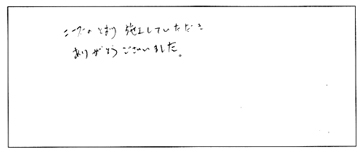 ニーズのとおり 施工していただき
ありがとうございました。